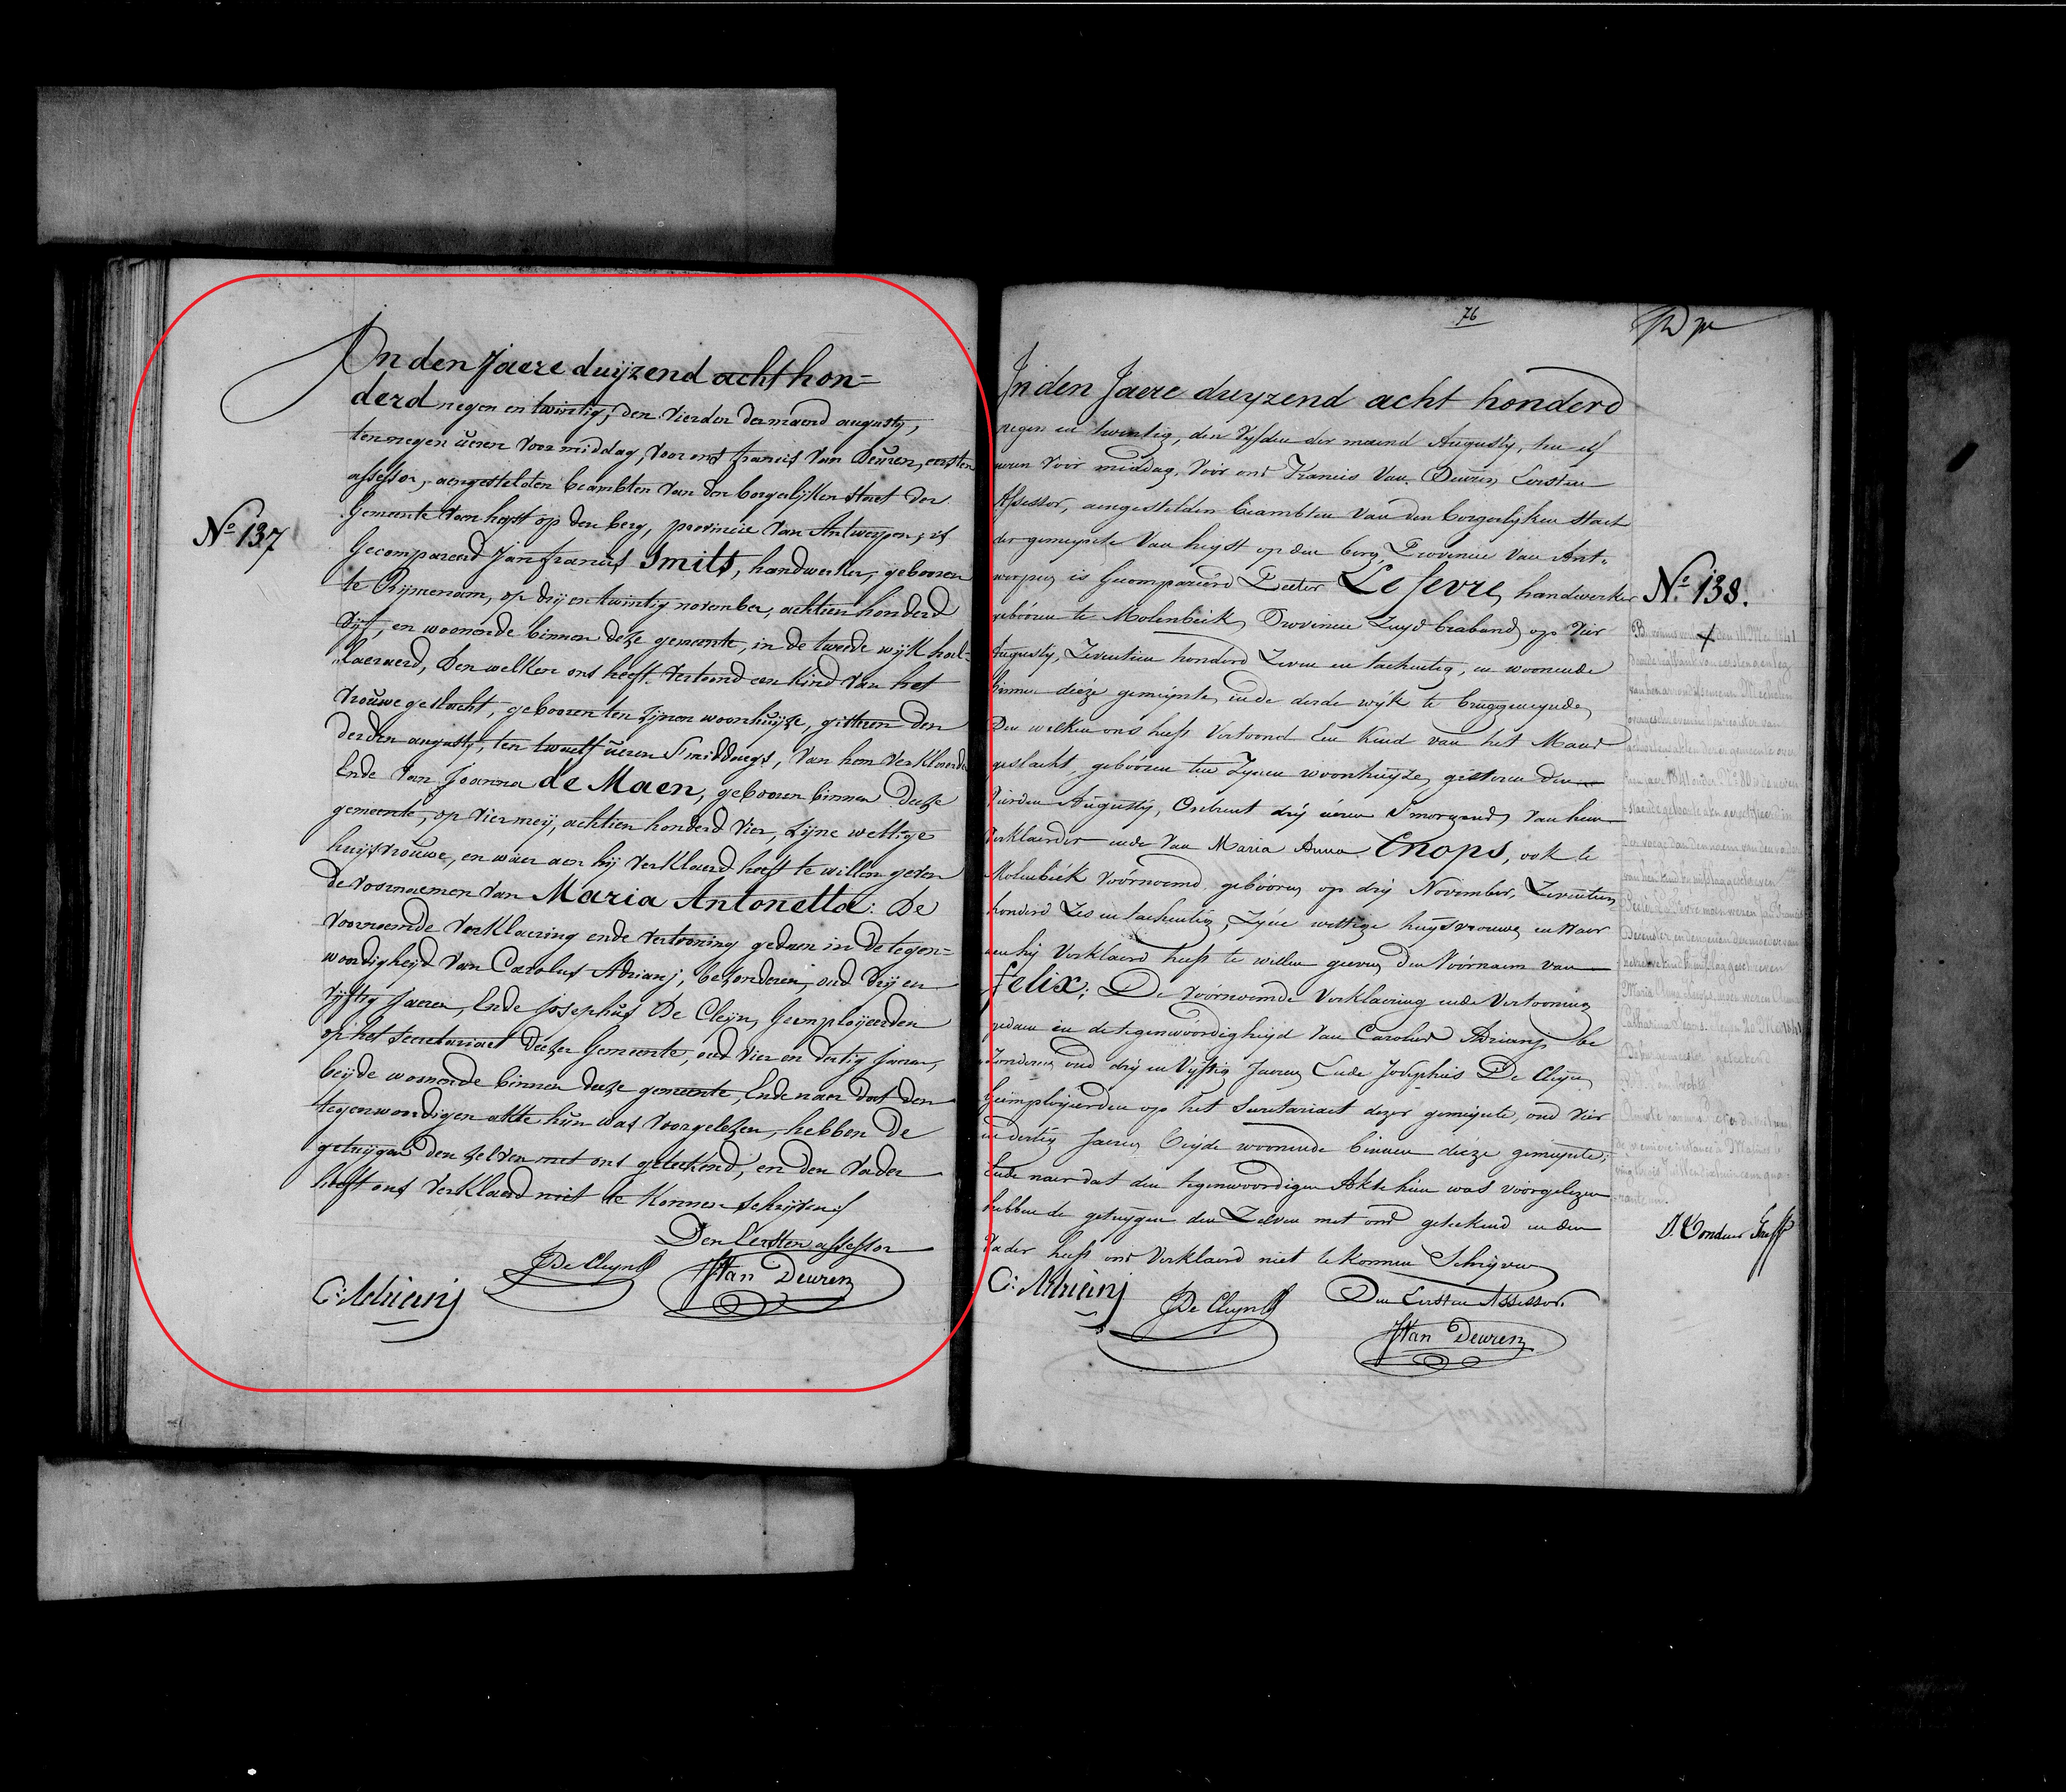 In den Jaere duijzend acht hon=
derd negen en twintig, den vierden der maend augusty,
ten negen ueren voormiddag, voor ons francis Van Deuren, eersten
assessor, aengestelden beambten van den borgerlijken staet der
gemeente van heyst op den berg, provincie van Antwerpen, is
N° 137
Gecompareerd Jan francis Smits, handwerker, gebooren
te Rijmenam, op drij en twintig november, achtien honderd
vijf, en woonende binnen deze gemeente, in de tweede wijk hal=
laeraerd, Den welken ons heeft vertoond een kind van het
vrouwe geslacht, gebooren ten zijnen woonhuijze, gisteren den
derden augusty, ten twaelf ueren S'middaegs, van hem verklaerder
Ende van Joanna de Maen, gebooren binnen deeze
gemeente, op vier meij, achtien honderd vier, zijne wettige
huijsvrouwe, en waer aen hij verklaerd heeft te willen geven
de voornaemen van Maria Antonetta: De
voornoemde verklaering ende vertooning gedaen in de tegen=
woordigheijd van Carolus Adrianj, bezonderen, oud drij en
vijftig Jaeren, Ende Josephus De Cleijn, Geemploijeerden
op het secretariaet deezer Gemeente, oud vier en dertig Jaeren,
beijde woonende binnen deeze gemeente, Ende naer dat den
tegenwoordigen akte hun was voorgelezen, hebben de
getuijgen den zelven met ons geteekend, en den vader
heeft ons verklaerd niet te konnen schrijven
Den Eersten assessor
C: Adrianj JDe Cleyn FVan Deuren
76
In den Jaere duyzend acht honderd
negen en twintig, den vyfden der maend Augusty, ten elf
ueren voor middag, voor ons Francis Van Deuren Eersten
Assessor, aengestelden beambten van den borgerlyken staet
der gemeynte van heyst op den berg, Provincie van Ant=
werpen, is Gecompareerd Peeter Lefevre, handwerker
N° 138.
gebooren te Molenbeek, Provincie Zuyd braband, op vier
Augusty, Zeventien honderd Zeven en tachentig, en woonende
binnen dieze gemeynte, in de derde wyk te bruggeneynde,
Den welken ons heeft vertoond een Kind van het Mans
geslacht, gebooren ten zynen woonhuyze, gisteren den
vierden Augusty, omtrent dry ueren S'morgends, van hem
verklaerder ende van Maria Anna Cnops, ook te
Molenbeek voornoemd, gebooren op dry November, Zeventien
honderd Zes en tachentig, Zyne wettige huysvrouwe, en Waer
aen hy verklaerd heeft te willen geeven den Voornaem van
Felix; De voornoemde Verklaering ende vertooning
gedaen in de tegenwoordigheyd van Carolus Adrianj, be
zonderen, oud dry en vyftig Jaeren, Ende Josephus De Cleyn
Geemployeerden op het Secretariaet dezer gemeynte, oud vier
en dertig Jaeren, beyde woonende binnen dieze gemeynte;
Ende naer dat den tegenwoordigen Akte hun was voorgelezen
hebben de getuygen den Zelven met ons geteekend en den
vader heeft ons verklaerd niet te konnen Schryven
Den Eersten Assessor.
C: Adrianj JDe Cleyn FVan Deuren